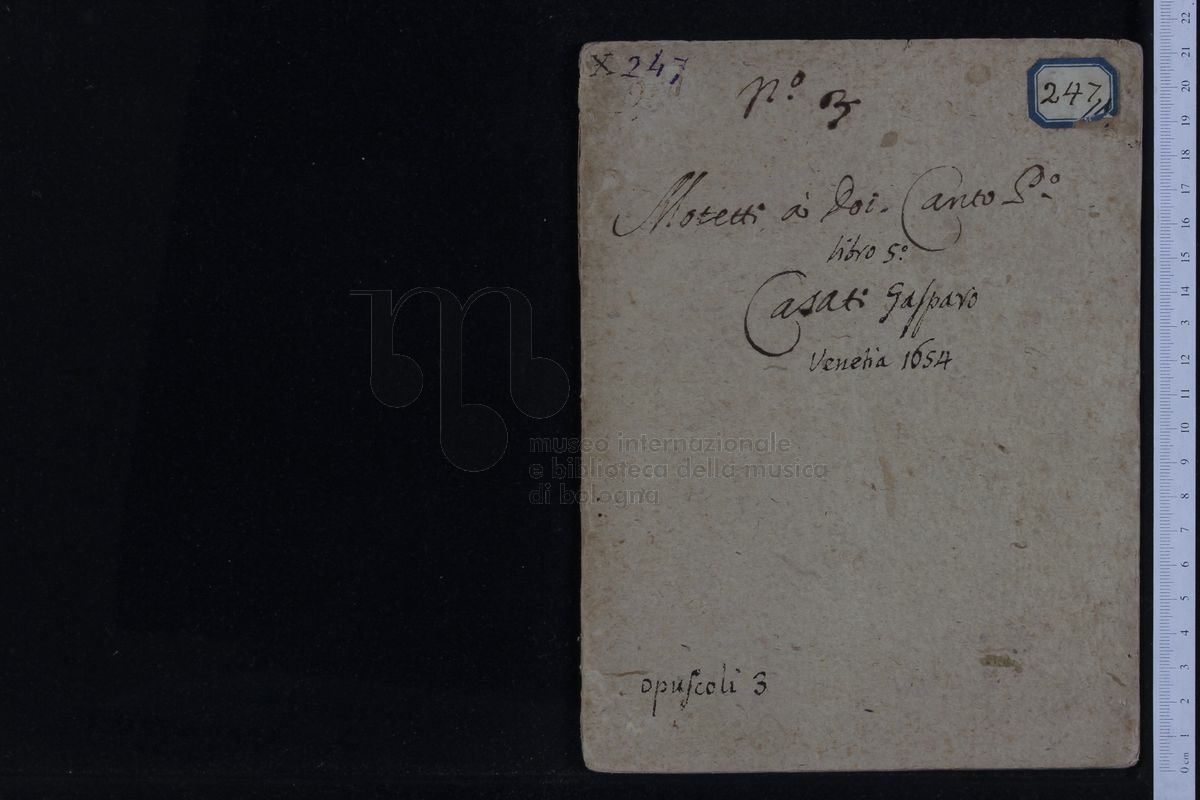 X 247
247
nº 3
Motetti à Doi. Canto Pº
libro 5º
Casati Gasparo
Venetia 1654
museo internazionale
e biblioteca della musica
di bologna
opuscoli 3
22
21
20
19
18
17
16
15
14
3
12
11
10
9
8
7
6
5
4
3
2
1
0 cm